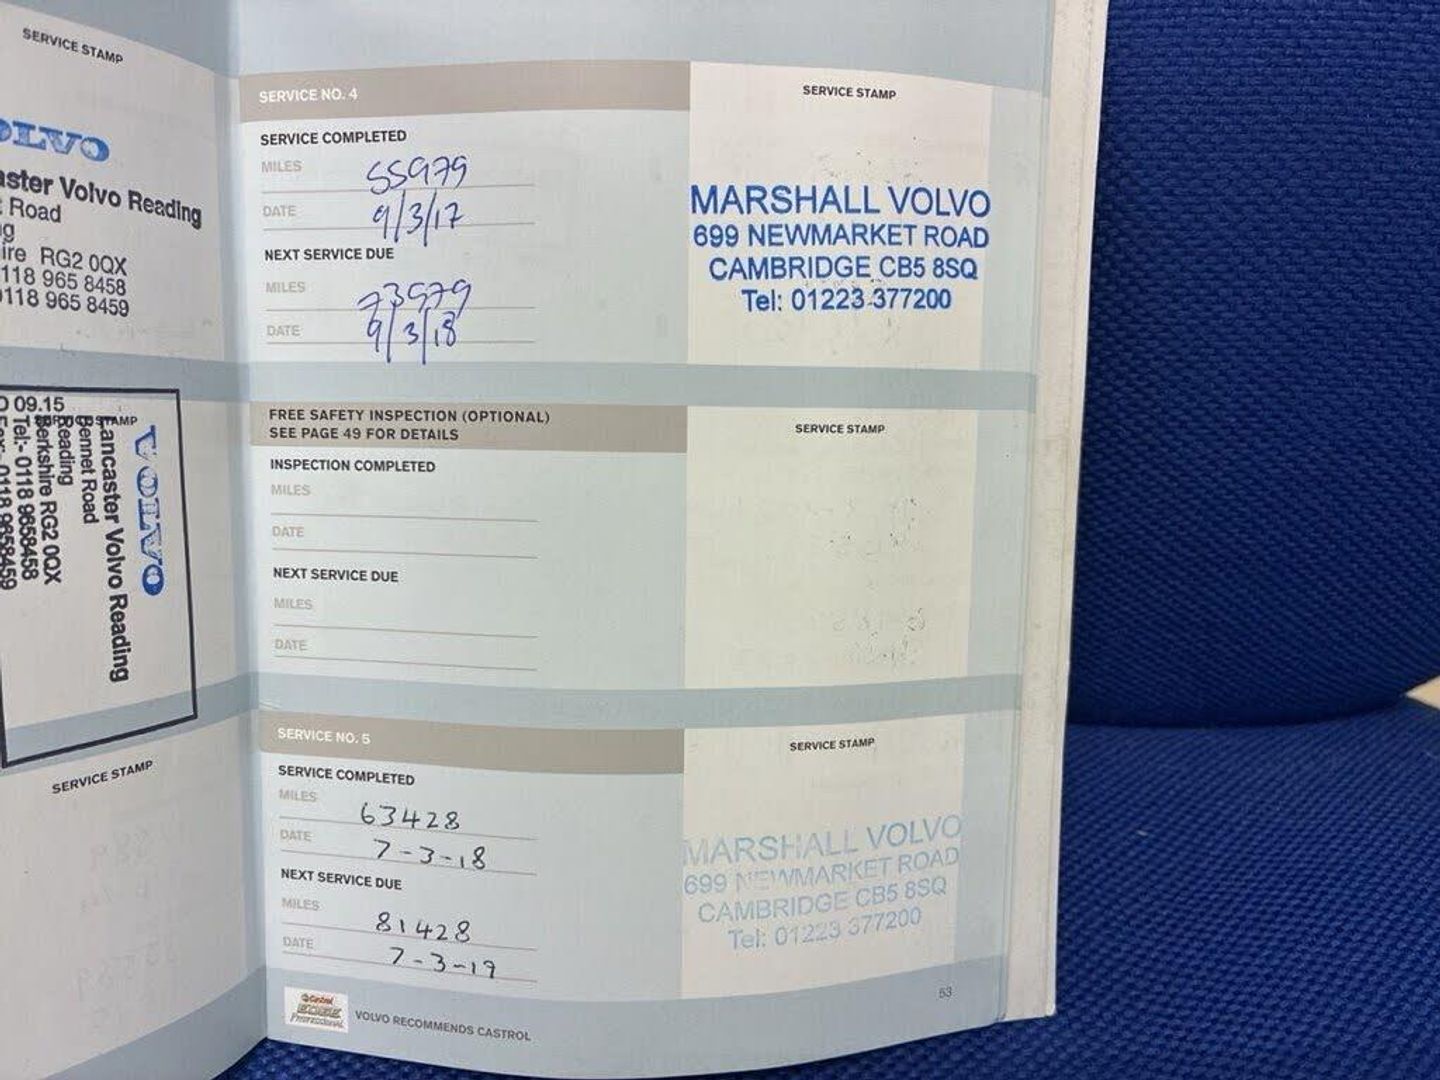 SERVICE STAMP
OLVO
aster Volvo Reading
Road
g
ire RG2 0QX
118 965 8458
0118 965 8459
O 09.15
SERVICE STAMP
VOLVO
Lancaster Volvo Reading
Bennet Road
Reading
Berkshire RG2 0QX
Tel:- 0118 9658458
Fax:- 0118 9658459
SERVICE STAMP
SERVICE NO. 4
SERVICE STAMP
SERVICE COMPLETED
MILES 55979
DATE 9/3/17
NEXT SERVICE DUE
MILES 73979
DATE 9/3/18
MARSHALL VOLVO
699 NEWMARKET ROAD
CAMBRIDGE CB5 8SQ
Tel: 01223 377200
FREE SAFETY INSPECTION (OPTIONAL)
SEE PAGE 49 FOR DETAILS
SERVICE STAMP
INSPECTION COMPLETED
MILES
DATE
NEXT SERVICE DUE
MILES
DATE
SERVICE NO. 5
SERVICE STAMP
SERVICE COMPLETED
MILES 63428
DATE 7-3-18
NEXT SERVICE DUE
MILES 81428
DATE 7-3-19
MARSHALL VOLVO
699 NEWMARKET ROAD
CAMBRIDGE CB5 8SQ
Tel: 01223 377200
Castrol
EDGE
Professional
VOLVO RECOMMENDS CASTROL
53